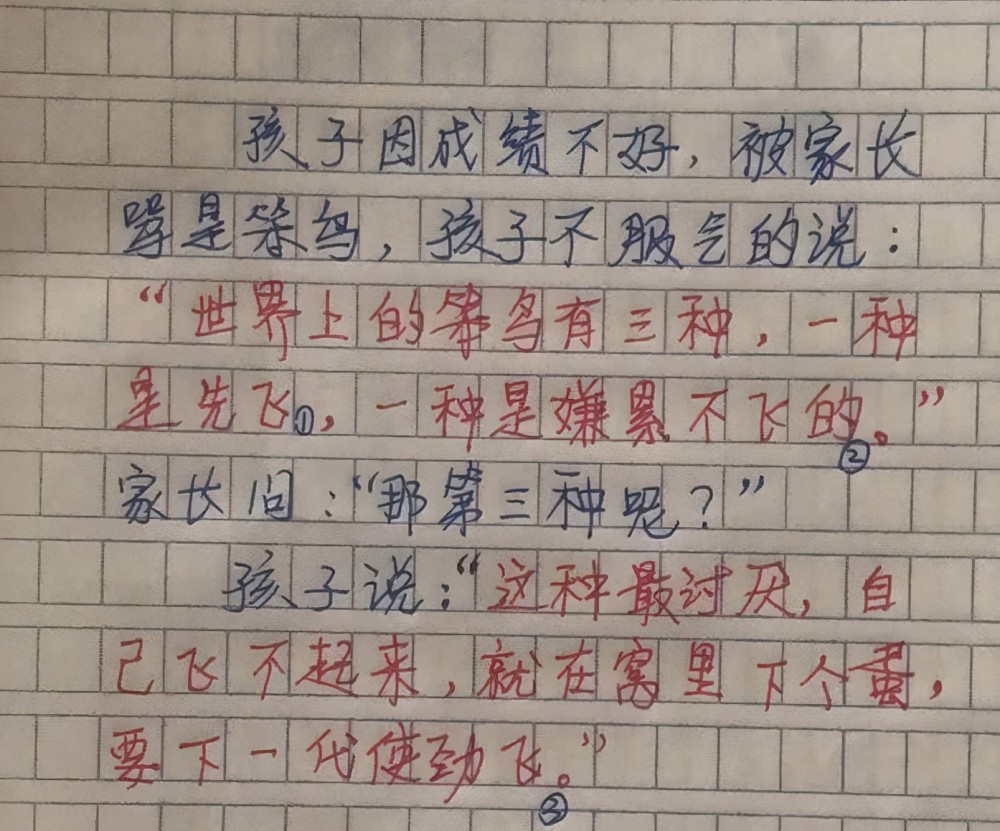 孩子因成绩不好，被家长
骂是笨鸟，孩子不服气的说：
“世界上的笨鸟有三种，一种
是先飞①，一种是嫌累不飞的。”②
家长问：“那第三种呢？”
孩子说：“这种最讨厌，自
己飞不起来，就在窝里下个蛋，
要下一代使劲飞。”③